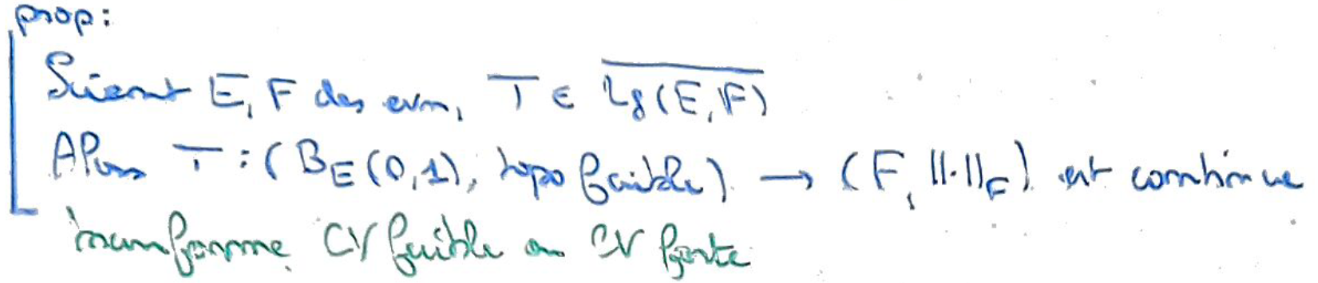 prop:
Soient E, F des evn, T ∈ \overline{L_f(E,F)}
Alors T : (B_E(0,1), topo faible) → (F, ||.||_F) est continue
transforme CV faible en CV forte